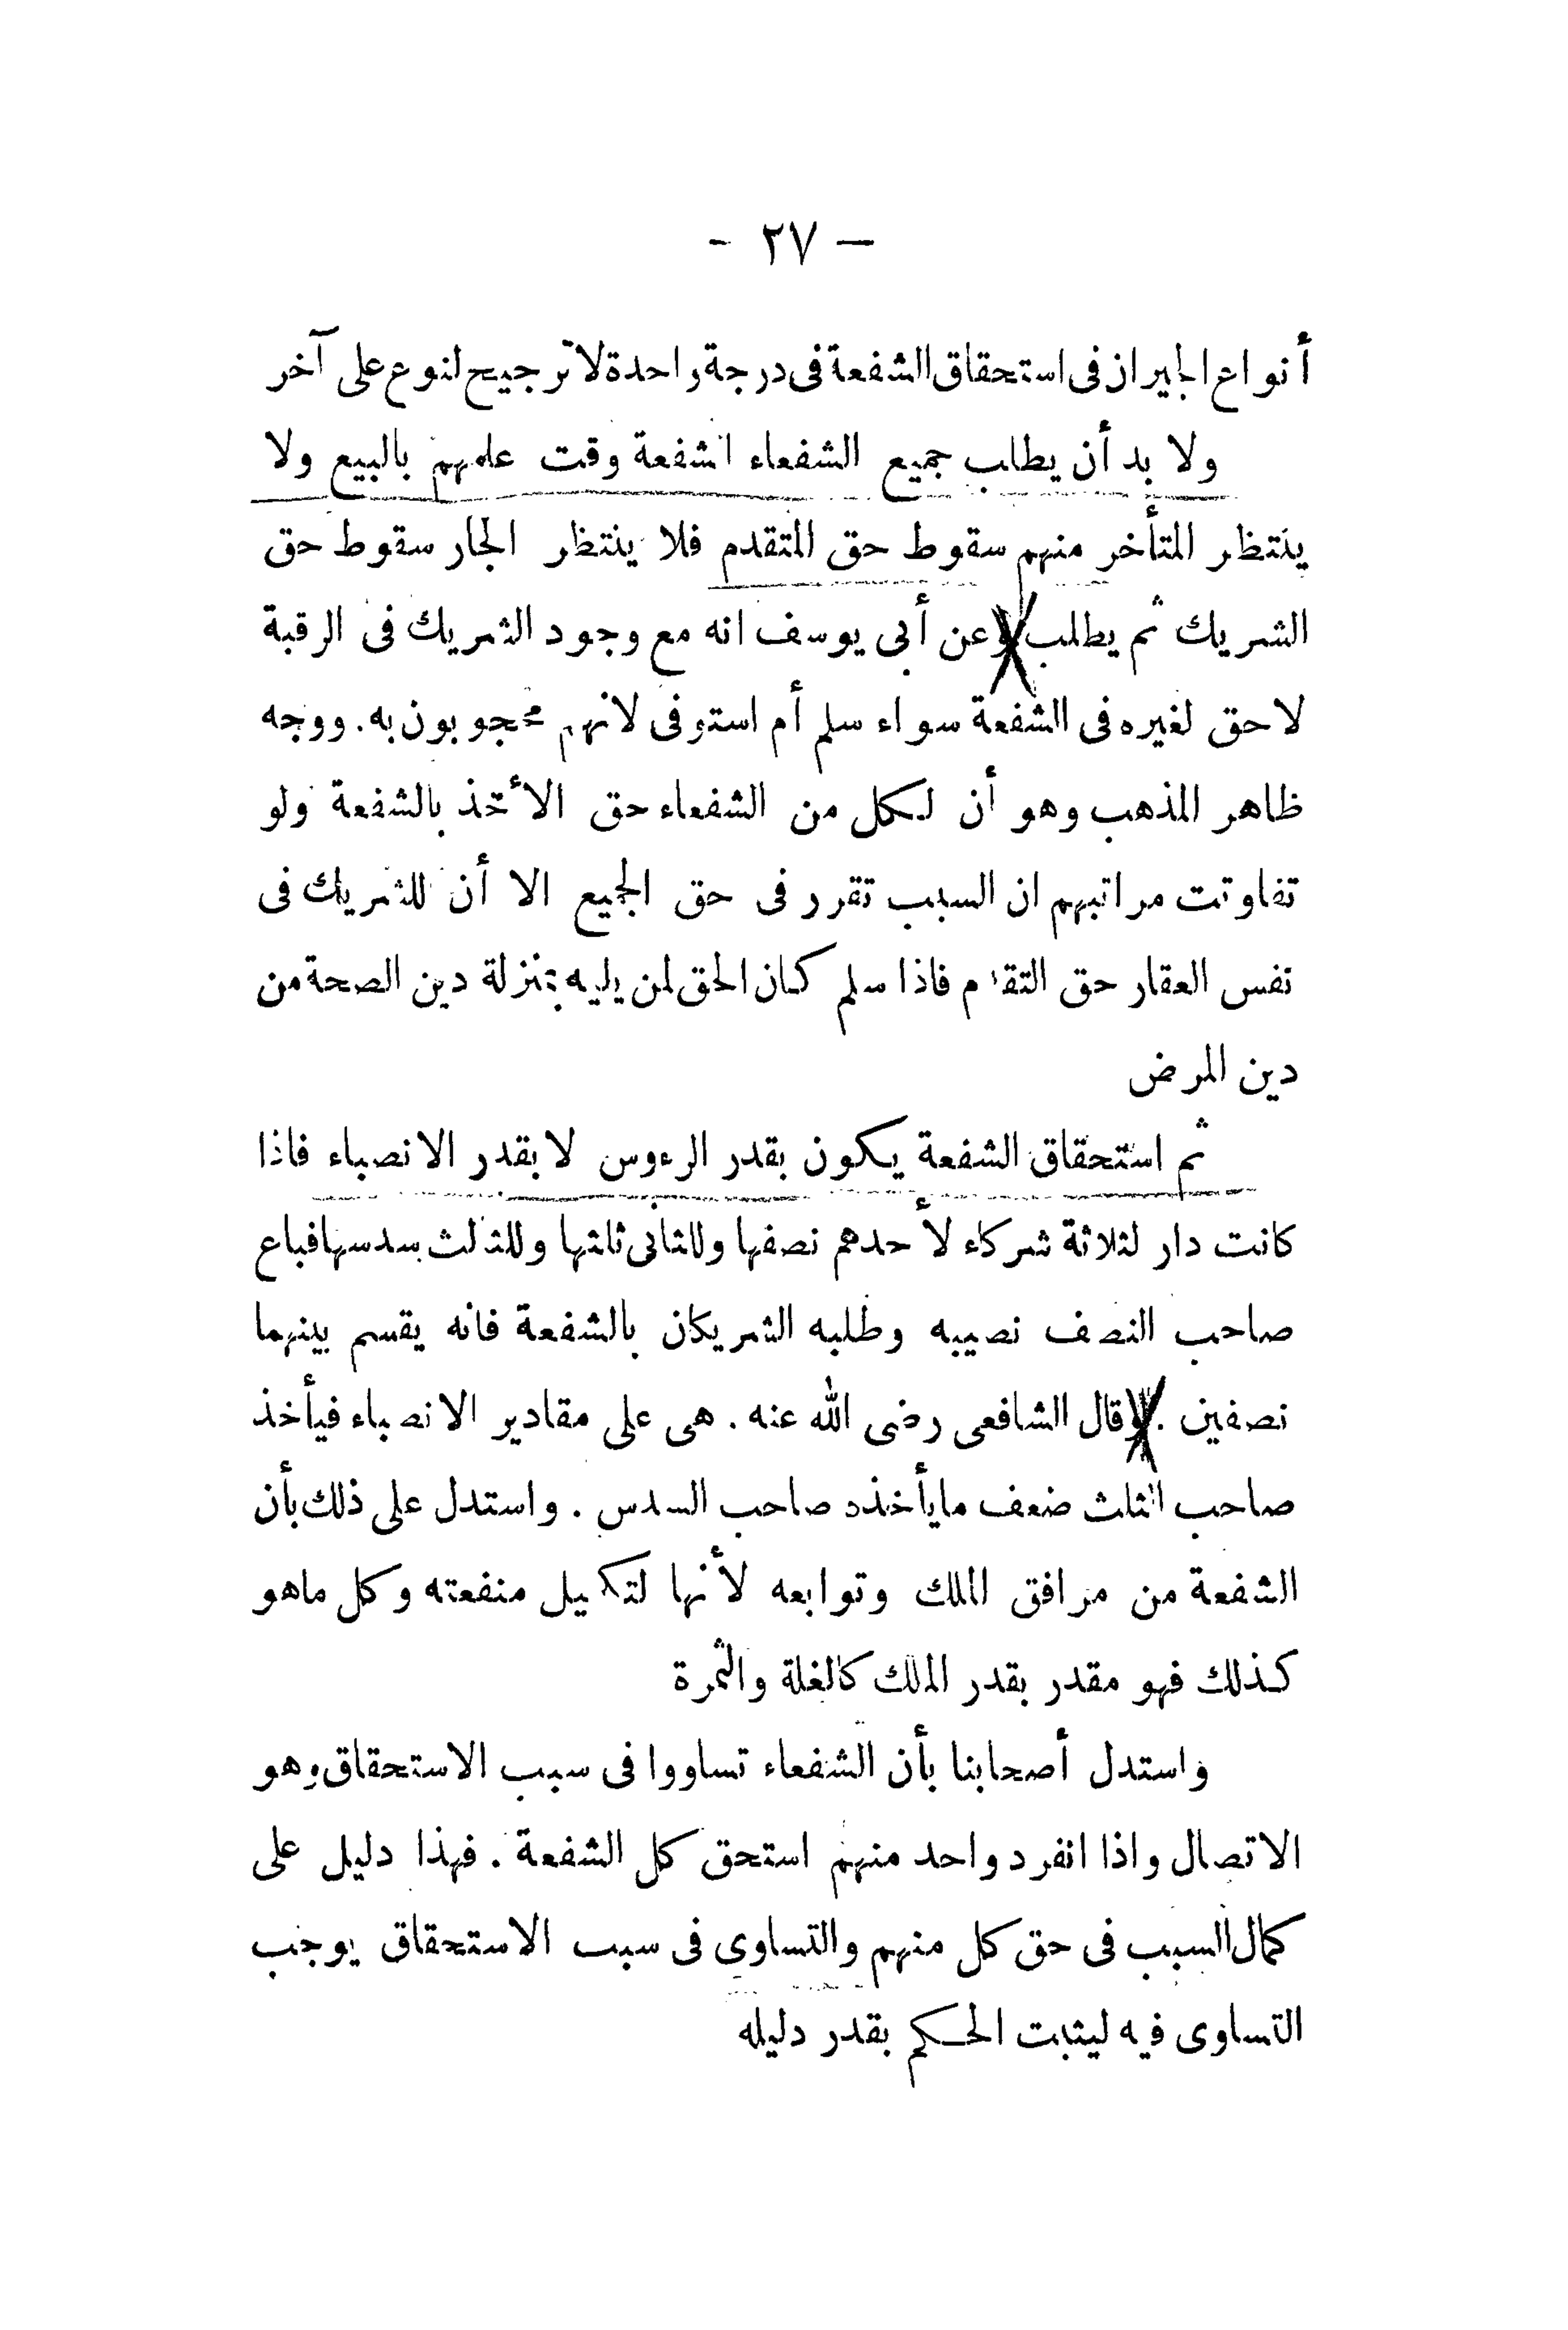 — ٢٧ -
أنواع الجيران فى استحقاق الشفعة فى درجة واحدة لا ترجيح لنوع على آخر
ولا بد أن يطلب جميع الشفعاء الشفعة وقت علمهم بالبيع ولا
ينتظر المتأخر منهم سقوط حق المتقدم فلا ينتظر الجار سقوط حق
الشريك ثم يطلب وعن أبى يوسف انه مع وجود الشريك فى الرقبة
لا حق لغيره فى الشفعة سواء سلم أم استوفى لانهم محجوبون به . ووجه
ظاهر المذهب وهو أن لكل من الشفعاء حق الأخذ بالشفعة ولو
تفاوتت مراتبهم ان السبب تقرر فى حق الجميع الا أن للشريك فى
نفس العقار حق التقدم فاذا سلم كان الحق لمن يليه بمنزلة دين الصحة من
دين المرض
ثم استحقاق الشفعة يكون بقدر الرءوس لا بقدر الانصباء فاذا
كانت دار لثلاثة شركاء لأحدهم نصفها وللثانى ثلثها وللثالث سدسها فباع
صاحب النصف نصيبه وطلبه الشريكان بالشفعة فانه يقسم بينهما
نصفين . وقال الشافعى رضى الله عنه . هى على مقادير الانصباء فيأخذ
صاحب الثلث ضعف ما يأخذه صاحب السدس . واستدل على ذلك بأن
الشفعة من مرافق الملك وتوابعه لأنها لتكميل منفعته وكل ماهو
كذلك فهو مقدر بقدر الملك كالغلة والثمرة
واستدل أصحابنا بأن الشفعاء تساووا فى سبب الاستحقاق وهو
الاتصال واذا انفرد واحد منهم استحق كل الشفعة . فهذا دليل على
كمال السبب فى حق كل منهم والتساوى فى سبب الاستحقاق يوجب
التساوى فيه ليثبت الحكم بقدر دليله